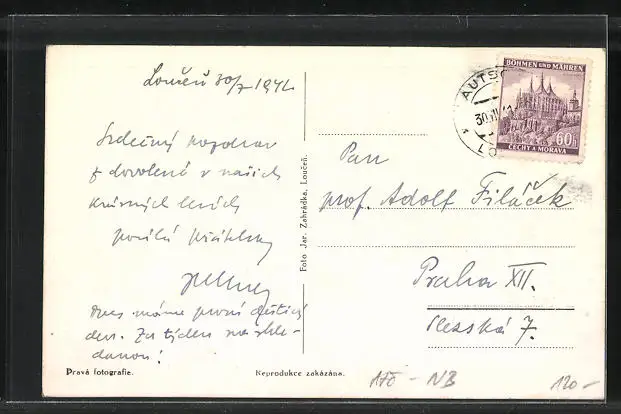 Loučeň 30/7 1942
BÖHMEN UND MÄHREN
60h
ČECHY A MORAVA
AUTSC
30.VII.
LO
Srdečný pozdrav
z dovolené v našich
krásných lesích
posílá přátelsky
Dnes máme první deštivý
den. Za týden na shle-
danou!
Pan
prof. Adolf Filáček
Praha XII.
Slezská 7.
Foto Jar. Zahrádka, Loučeň.
Pravá fotografie.
Reprodukce zakázána.
NB
120-